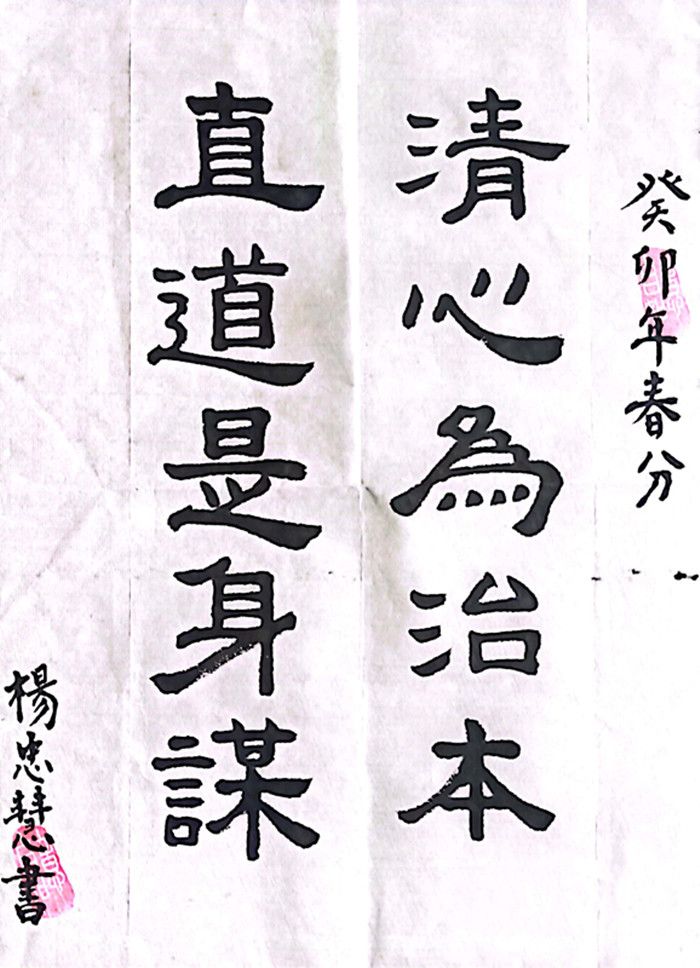 癸卯年春分
清心為治本
直道是身謀
楊忠慧書